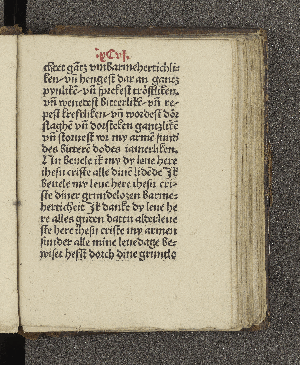 chtet gātz vnbarmehertichli-
ken· vn̄ hengest dar an gantz
pynlikē· vn̄ sprekest trostliken·
vn̄ wenetst bitterlikē· vn̄ re-
pest krefftiken· vn̄ wordest dor
slaghē vn̄ dorsteken gantzlikē
vn̄ storuest vor my armē sund
des bitterē dodes iamerliken.
Un beuele ik my dy leue here
ihesu criste alle dinē lidēde Ik
beuele my leue here ihesu cri-
ste diner grundelozen barme-
herticheit Ik danke dy leue he
re alles guden dattu alderleue
ste here ihesu criste my armen
sunder alle mine leuedage be-
wiset hefst dorch dine grunde